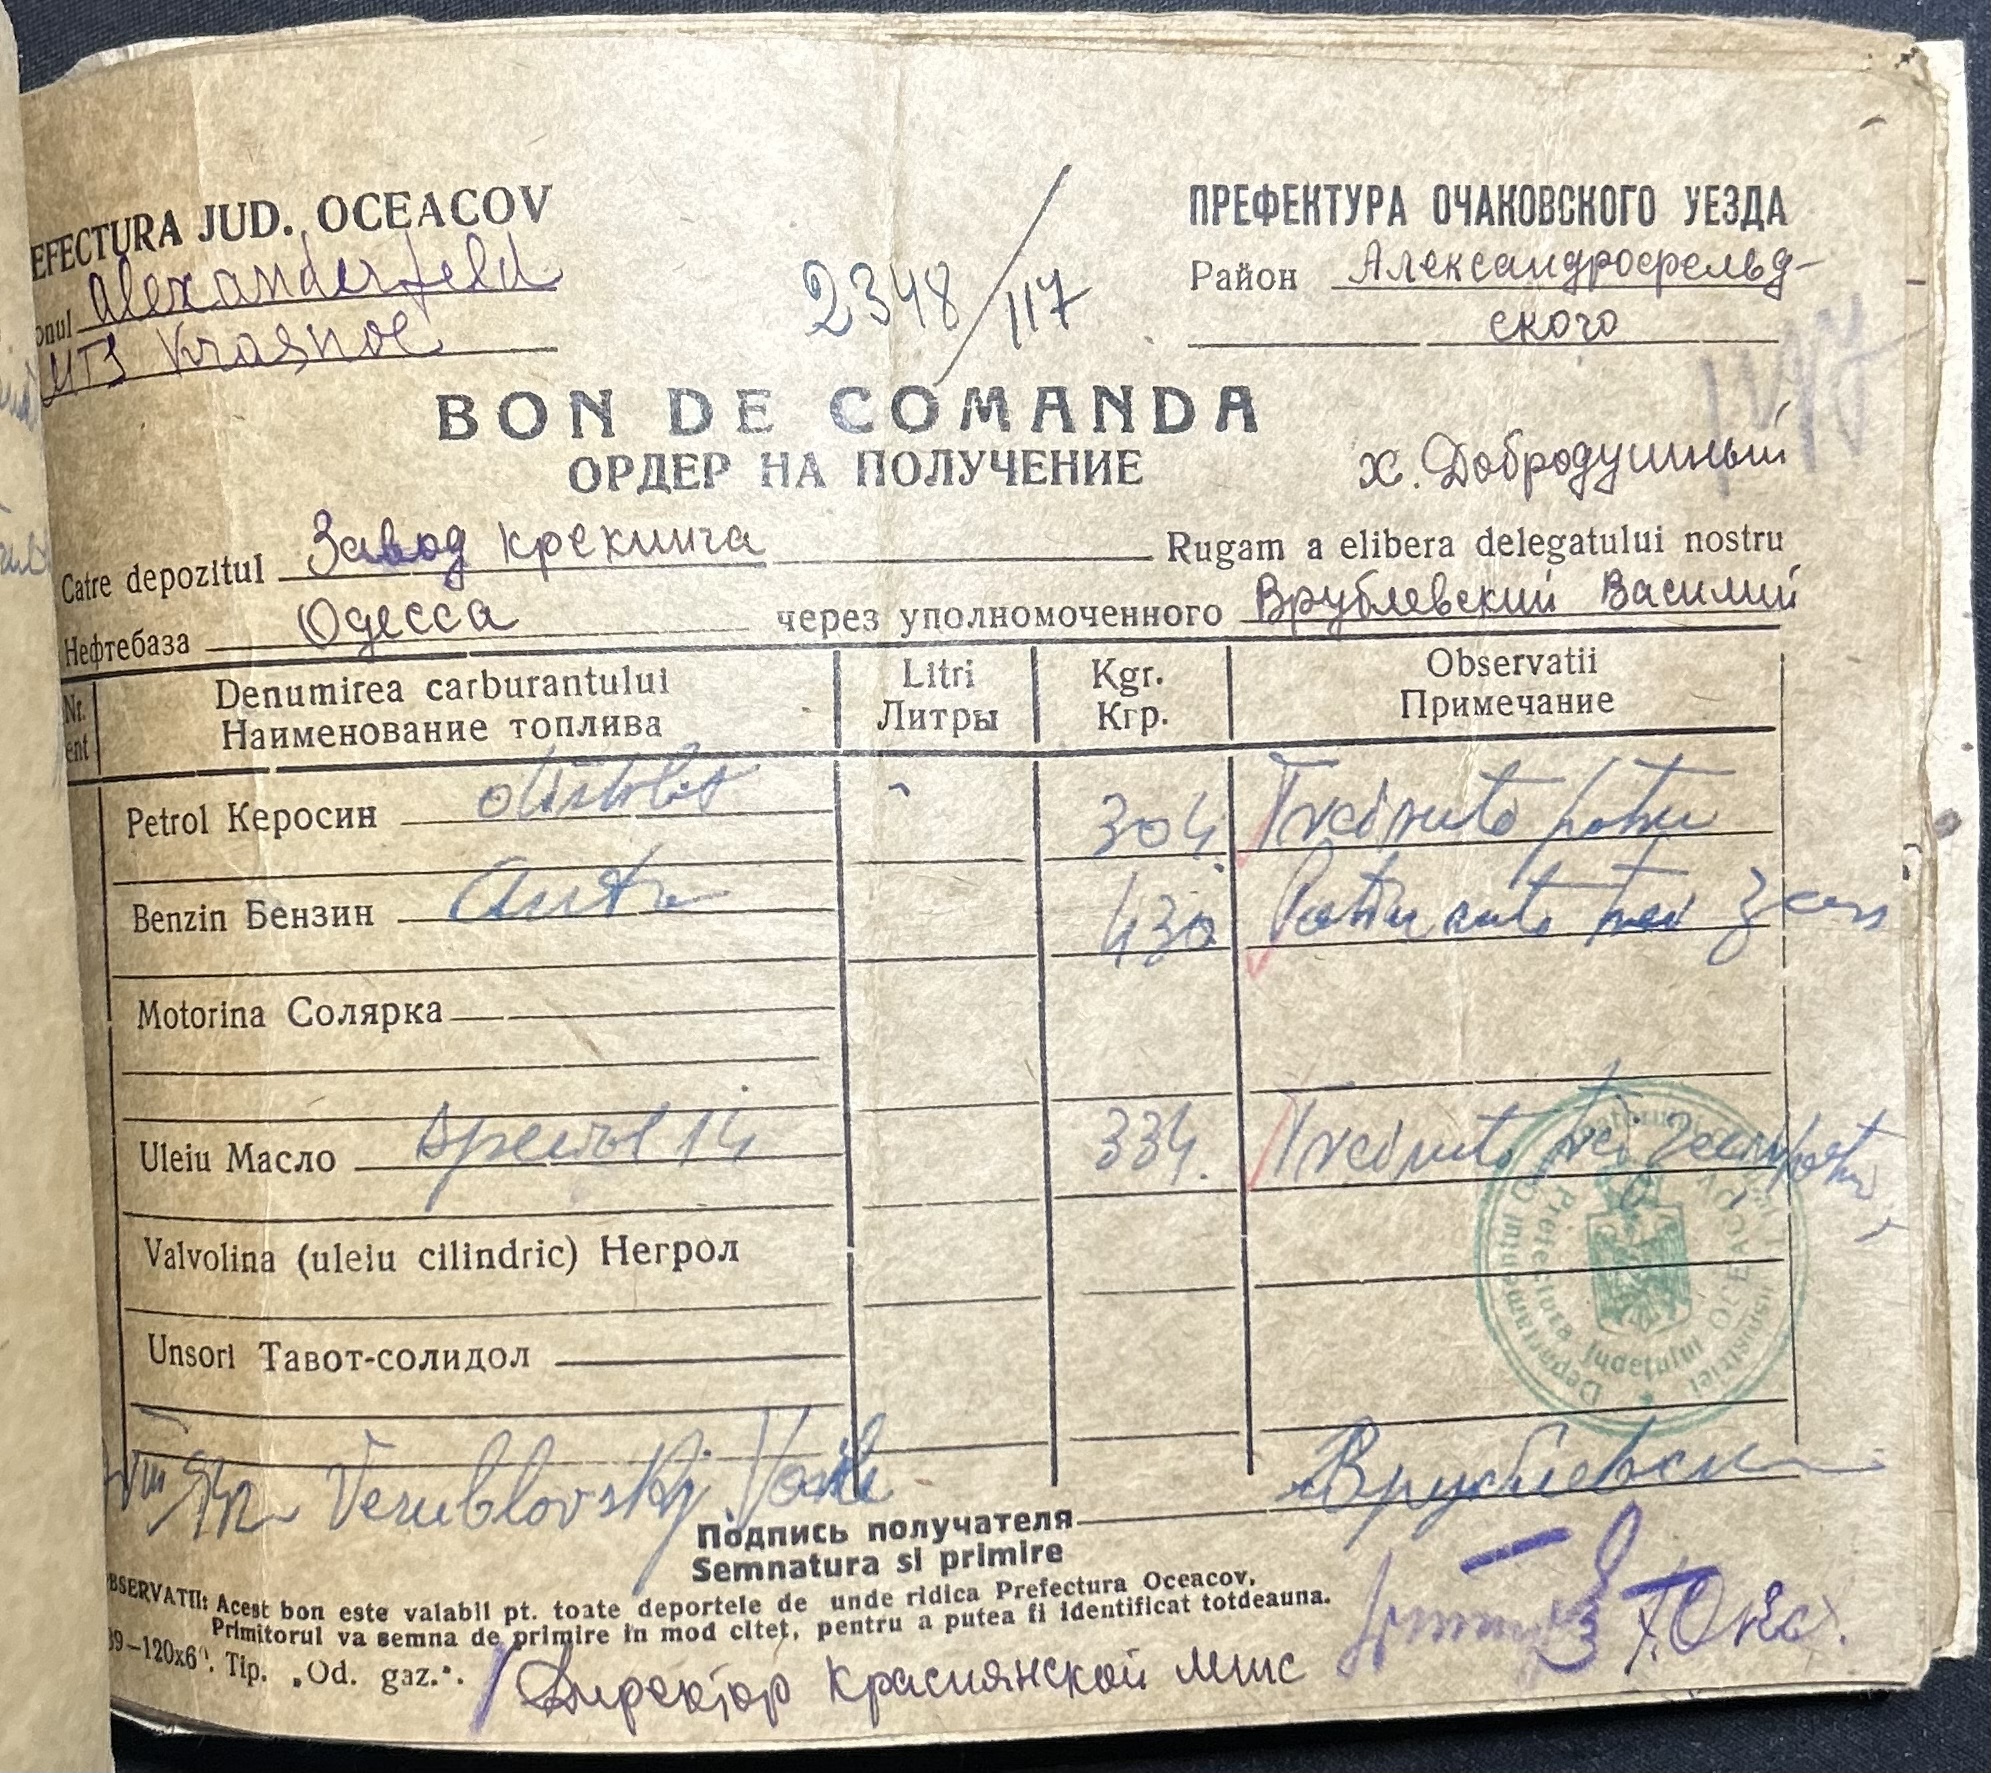 EFECTURA JUD. OCEACOV
ПРЕФЕКТУРА ОЧАКОВСКОГО УЕЗДА
onul Alexanderfeld
2348/117
Район Александрофельд-
ского
MTS Krasnoe
BON DE COMANDA
ОРДЕР НА ПОЛУЧЕНИЕ
х. Добродушный
Catre depozitul Завод крекинга Rugam a elibera delegatului nostru
Нефтебаза Одесса через уполномоченного Врублевский Василий
Nr. Denumirea carburantului Litri Kgr. Observatii
ent Наименование топлива Литры Кгр. Примечание
Petrol Керосин 304 Trei sute patru
Benzin Бензин 430 Patru sute trei zeci
Motorina Солярка
Uleiu Масло 14 334. Trei sute trei zeci patru
Valvolina (uleiu cilindric) Негрол
Unsori Тавот-солидол
Departamentul Industriei
Prefectura Judeţului OCEACOV
Verublovskij Vasile
Врублевски
Подпись получателя
Semnatura si primire
BSERVATII: Acest bon este valabil pt. toate deportele de unde ridica Prefectura Oceacov.
Primitorul va semna de primire in mod citet, pentru a putea fi identificat totdeauna.
39—120x6". Tip. „Od. gaz.".
Директор Краснянской мтс